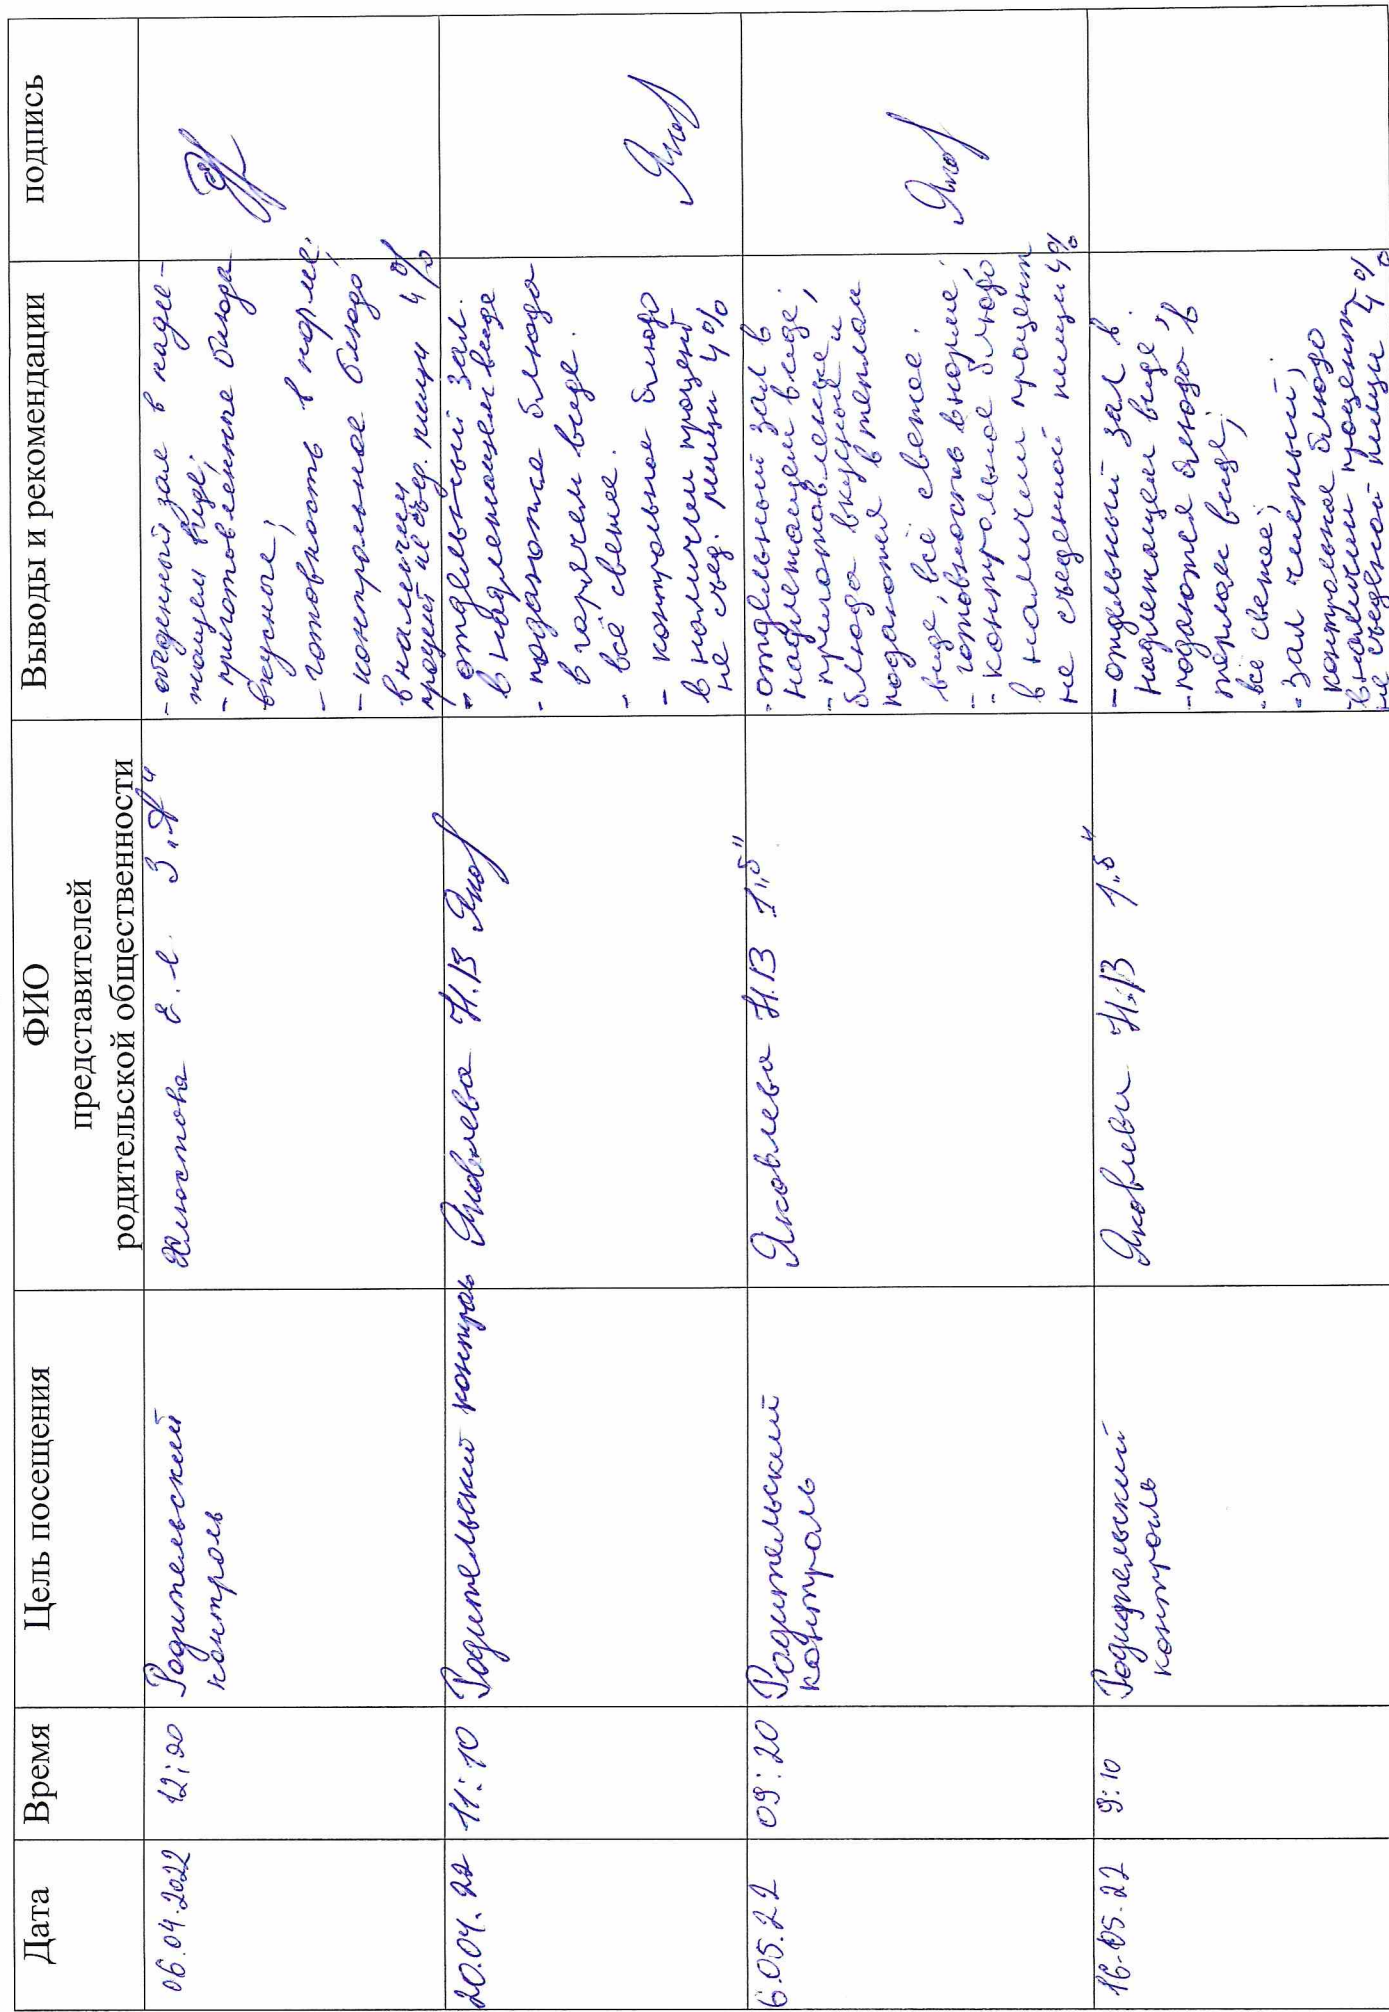 Дата
Время
Цель посещения
ФИО
представителей
родительской общественности
Выводы и рекомендации
подпись
06.04.2022
12:20
Родительский
контроль
Хлюстова Е. С. 3 „А"
- обеденный зал в надле-
жащем виде;
- приготовленные блюда
вкусные;
- готовность в норме;
- контрольное блюдо
в наличии
процент не съед. пищи 4%
20.04.22
11:10
Родительский контроль
Яковлева Н.В Яков
- отдельный зал.
в надлежащем виде
- подаются блюда
в горячем виде.
- всё свежее.
- контрольное блюдо
в наличии процент
не съед. пищи 4%
Яков
6.05.22
09:20
Родительский
контроль
Яковлева Н.В 1„б"
- отдельный зал в
надлежащем виде;
- приготовленные
блюда вкусные и
подаются в теплом
виде, всё свежее.
- готовность в норме;
- контрольное блюдо
в наличии процент
не съеденной пищи 4%
Яков
16.05.22
9:10
Родительский
контроль
Яковлева Н.В 1„б"
- отдельный зал в
надлежащем виде;
- подаются блюда в
теплом виде;
- всё свежее;
- зал чистый;
контрольное блюдо
в наличии процент
не съеденной пищи 4%